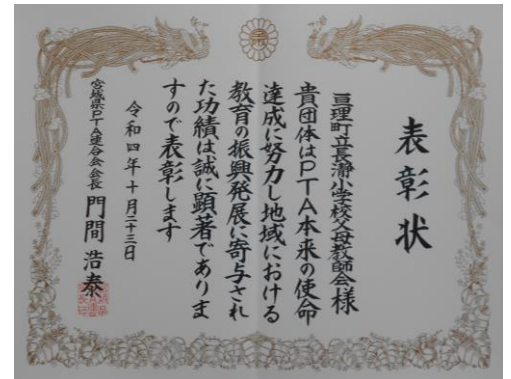 表彰状
亘理町立長瀞小学校父母教師会様
貴団体はPTA本来の使命
達成に努力し地域における
教育の振興発展に寄与され
た功績は誠に顕著でありま
すので表彰します
令和四年十月二十三日
宮城県PTA連合会会長 門間浩泰